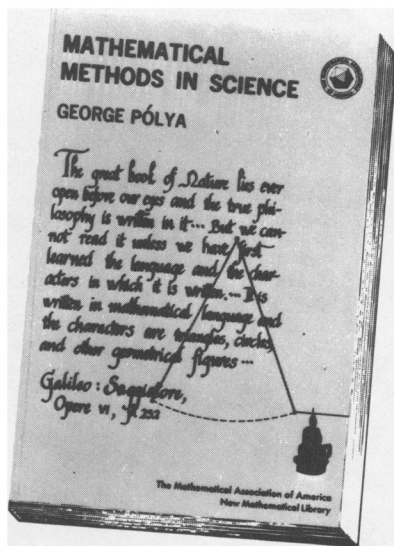 MATHEMATICAL
METHODS IN SCIENCE
GEORGE PÓLYA
The great book of Nature lies ever
open before our eyes and the true phi-
losophy is written in it ... But we can-
not read it unless we have first
learned the language and the char-
acters in which it is written ... It is
written in mathematical language and
the characters are triangles, circles
and other geometrical figures ...
Galileo: Saggiatore,
Opere VI, p. 232
The Mathematical Association of America
New Mathematical Library